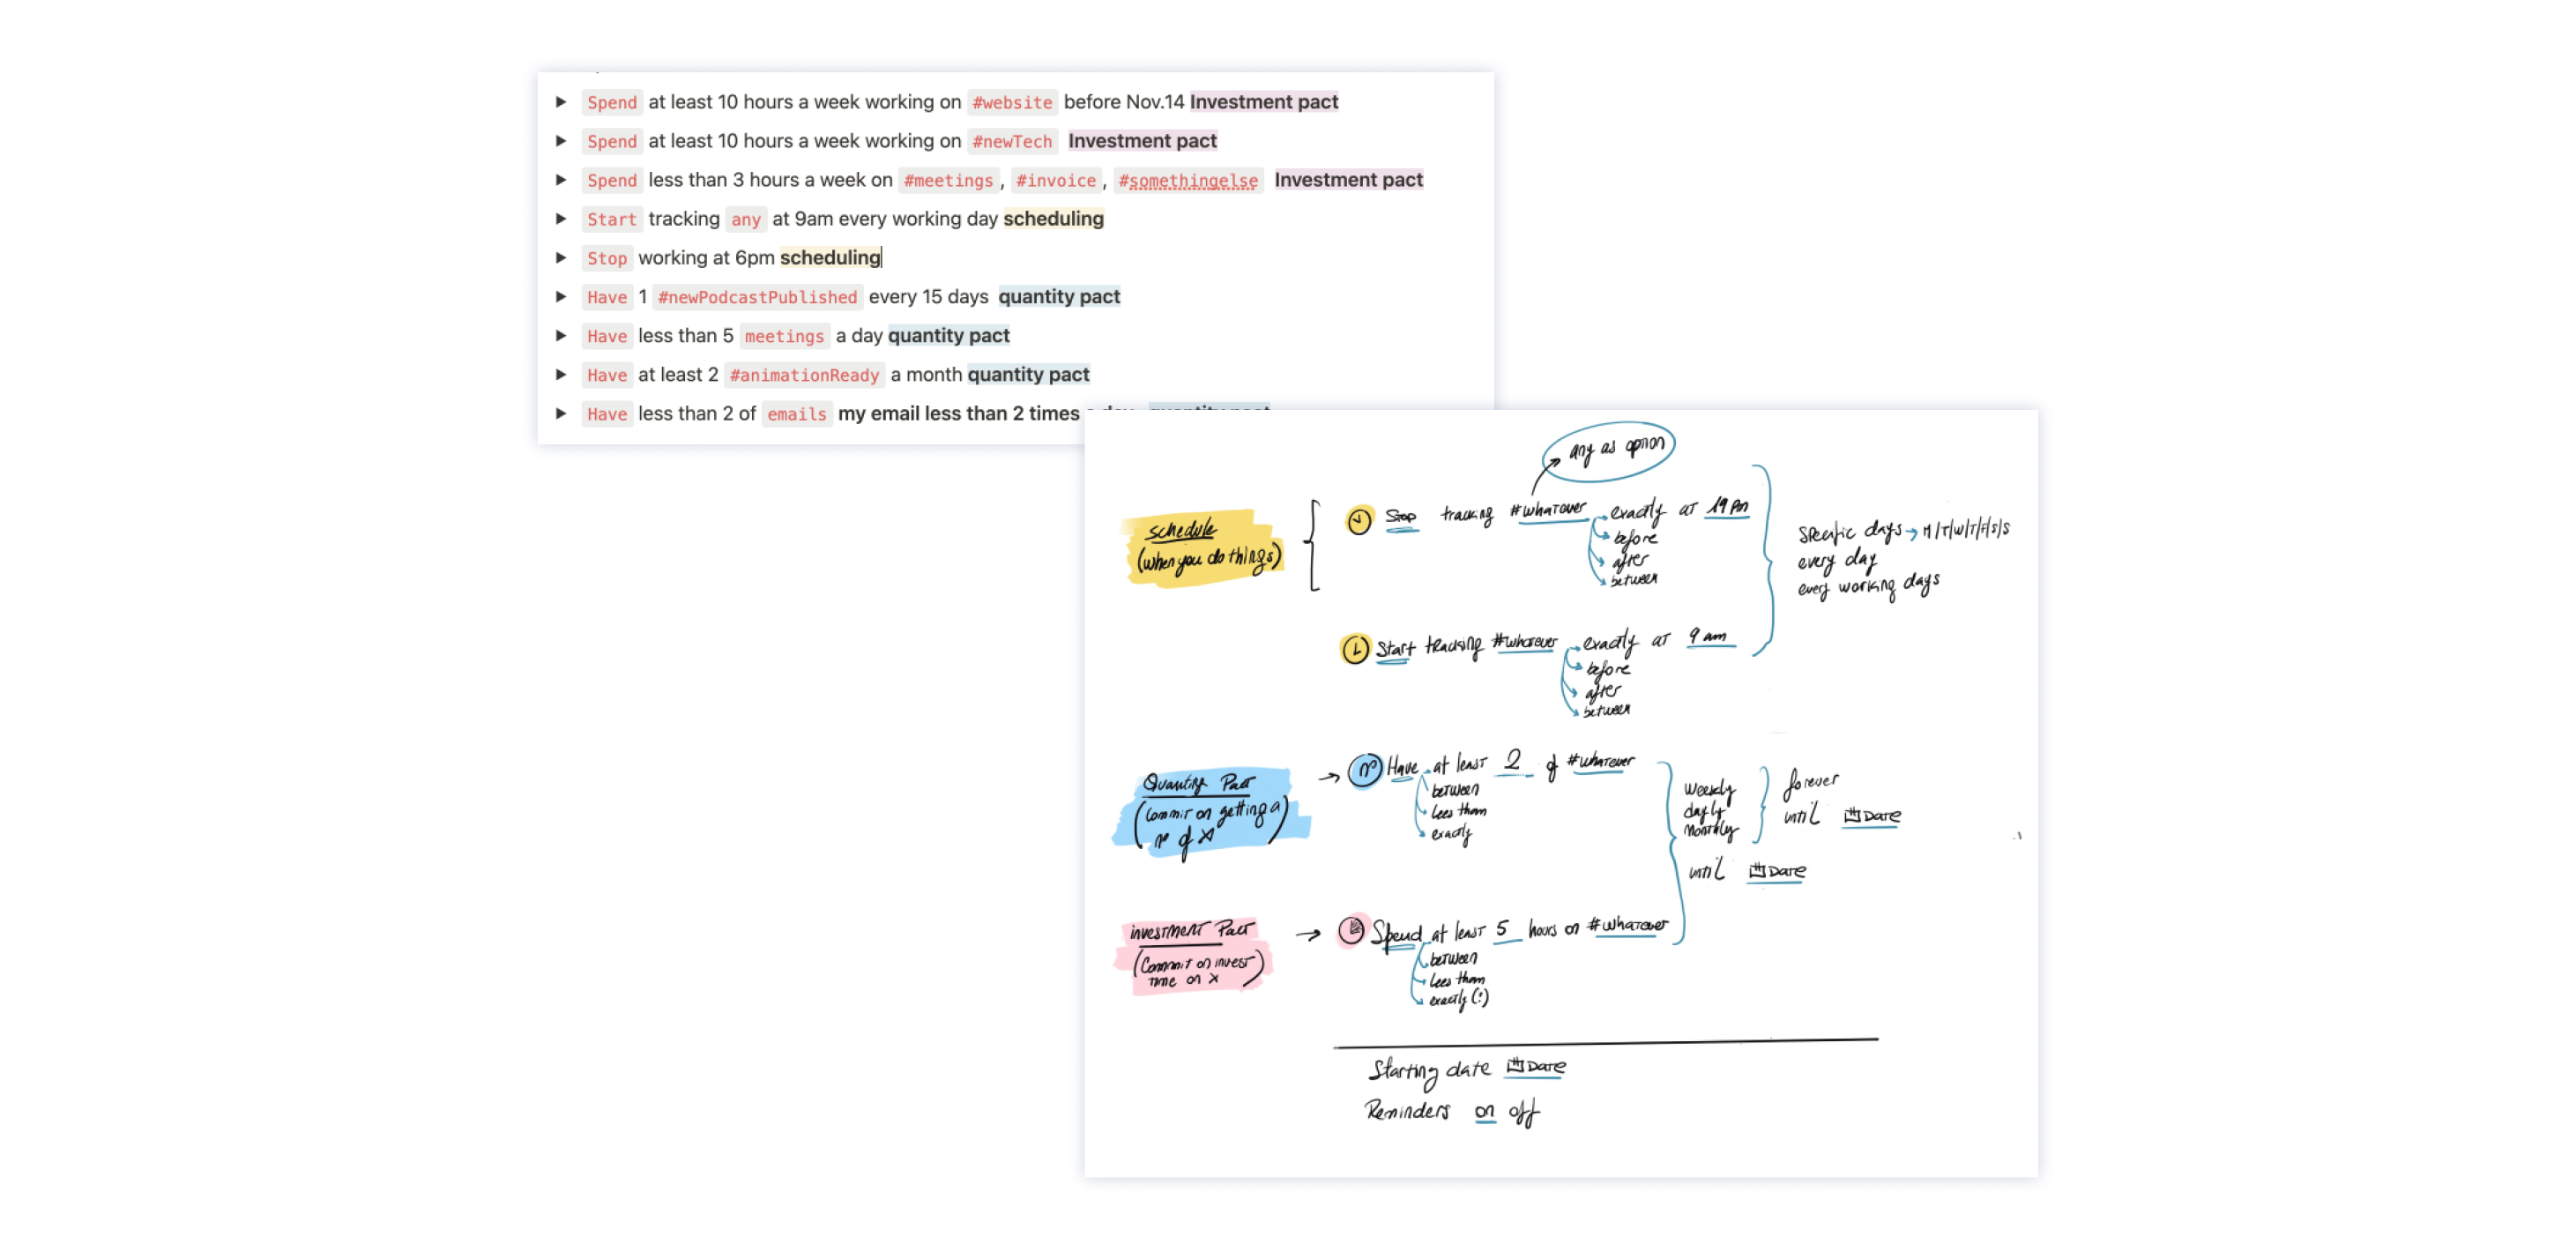 Spend at least 10 hours a week working on #website before Nov.14 Investment pact
Spend at least 10 hours a week working on #newTech Investment pact
Spend less than 3 hours a week on #meetings, #invoice, #somethingelse Investment pact
Start tracking any at 9am every working day scheduling
Stop working at 6pm scheduling
Have 1 #newPodcastPublished every 15 days quantity pact
Have less than 5 meetings a day quantity pact
Have at least 2 #animationReady a month quantity pact
Have less than 2 of emails my email less than 2 times
any as option
schedule
(when you do things)
Stop tracking #whatever exactly at 19 pm
before
after
between
Specific days → M/T/W/T/F/S/S
every day
every working days
Start tracking #whatever exactly at 9 am
before
after
between
Quantity Pact
(Commit on getting a
n° of X)
n° Have at least 2 of #whatever
between
Lees than
exactly
Weekly
dayly
Monthly
forever
until Date
until Date
investment Pact
(Commit on invest
time on X)
Spend at least 5 hours on #whatever
between
Lees than
exactly (!)
Starting date Date
Reminders on off